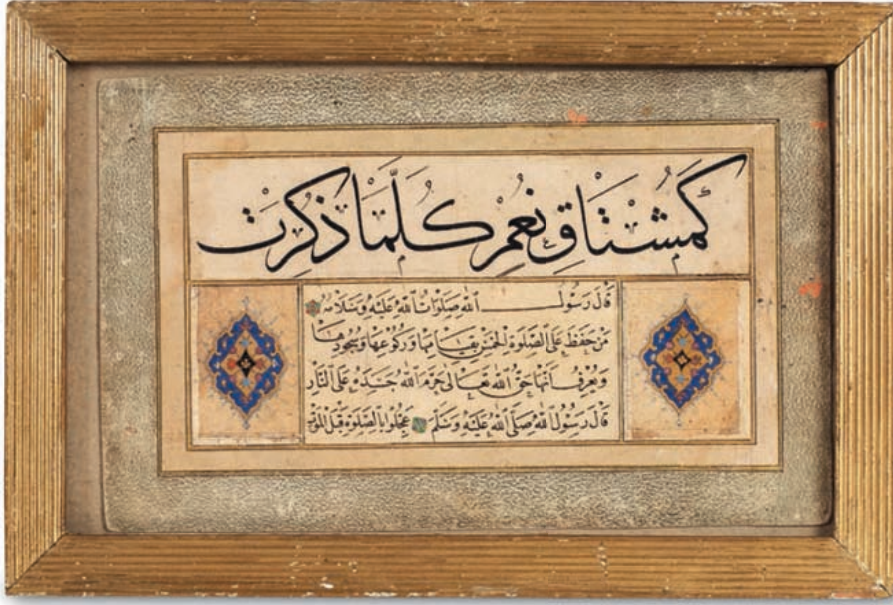 كَمُشْتَاقِ نُعْمٍ كُلَّمَا ذُكِرَتْ
قَالَ رَسُولُ اللّٰهِ صَلَوَاتُ اللّٰهِ عَلَيْهِ وَسَلَامُهُ
مَنْ حَفِظَ عَلَى الصَّلَوةِ الْخَمْسِ بِقِيَامِهَا وَرُكُوعِهَا وَسُجُودِهَا
وَيَعْرِفُ اَنَّهَا حَقُّ اللّٰهِ تَعَالٰى حَرَّمَ اللّٰهُ جَسَدَهُ عَلَى النَّارِ
قَالَ رَسُولُ اللّٰهِ صَلَّى اللّٰهُ عَلَيْهِ وَسَلَّمَ عَجِّلُوا بِالصَّلَوةِ قَبْلَ الْمَوْتِ